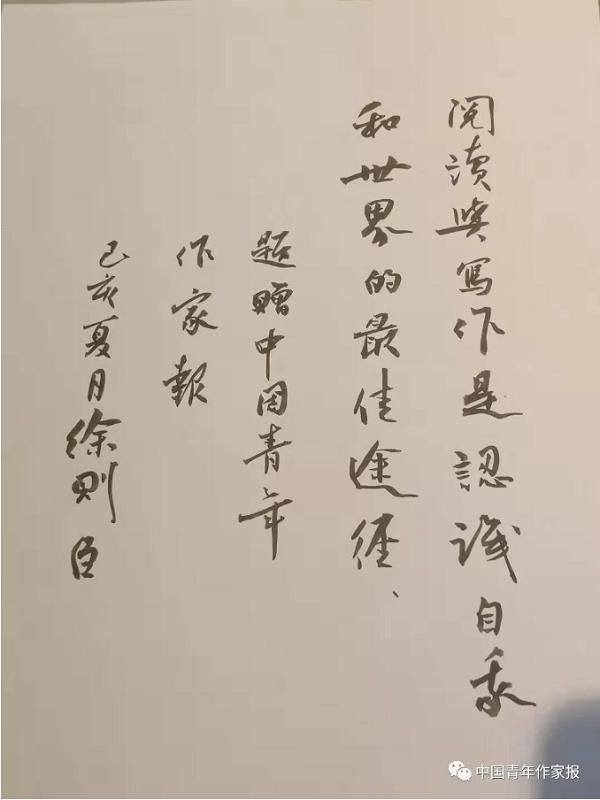 阅讀與寫作是認識自我
和世界的最佳途徑、
题贈中国青年
作家報
己亥夏月徐则臣
中国青年作家报